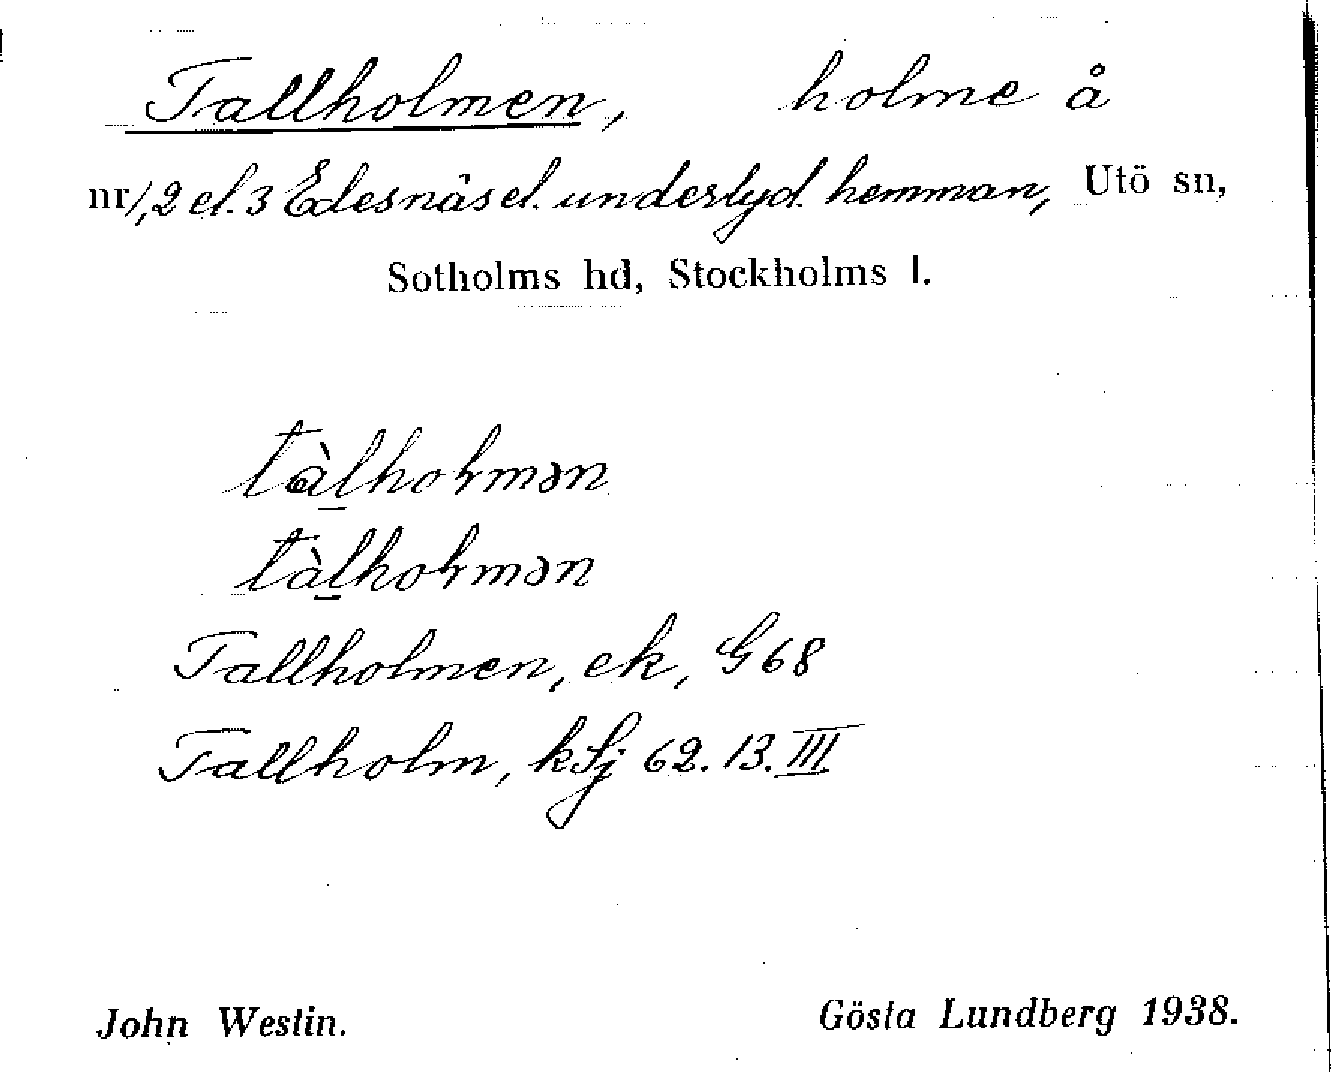 Tallholmen, holme å
nr 1, 2 el. 3 Edesnäs el. underlyd. hemman, Utö sn,
Sotholms hd, Stockholms l.
tàlhoɫmən
tàlhoɫmən
Tallholmen, ek, G 68
Tallholm, kSj 62. 13. III
John Westin. Gösta Lundberg 1938.